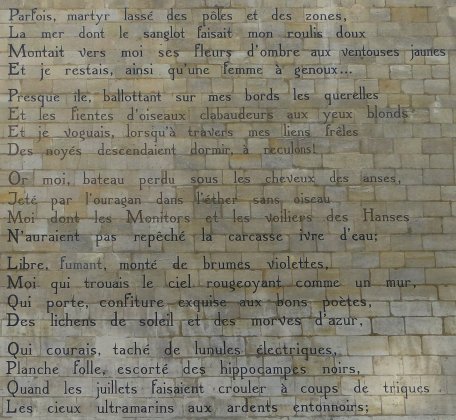 Parfois, martyr lassé des pôles et des zones,
La mer dont le sanglot faisait mon roulis doux
Montait vers moi ses fleurs d'ombre aux ventouses jaunes
Et je restais, ainsi qu'une femme à genoux...
Presque île, ballottant sur mes bords les querelles
Et les fientes d'oiseaux clabaudeurs aux yeux blonds
Et je voguais, lorsqu'à travers mes liens frêles
Des noyés descendaient dormir, à reculons!
Or moi, bateau perdu sous les cheveux des anses,
Jeté par l'ouragan dans l'éther sans oiseau
Moi dont les Monitors et les voiliers des Hanses
N'auraient pas repêché la carcasse ivre d'eau;
Libre, fumant, monté de brumes violettes,
Moi qui trouais le ciel rougeoyant comme un mur,
Qui porte, confiture exquise aux bons poètes,
Des lichens de soleil et des morves d'azur,
Qui courais, taché de lunules électriques,
Planche folle, escorté des hippocampes noirs,
Quand les juillets faisaient crouler à coups de triques
Les cieux ultramarins aux ardents entonnoirs;